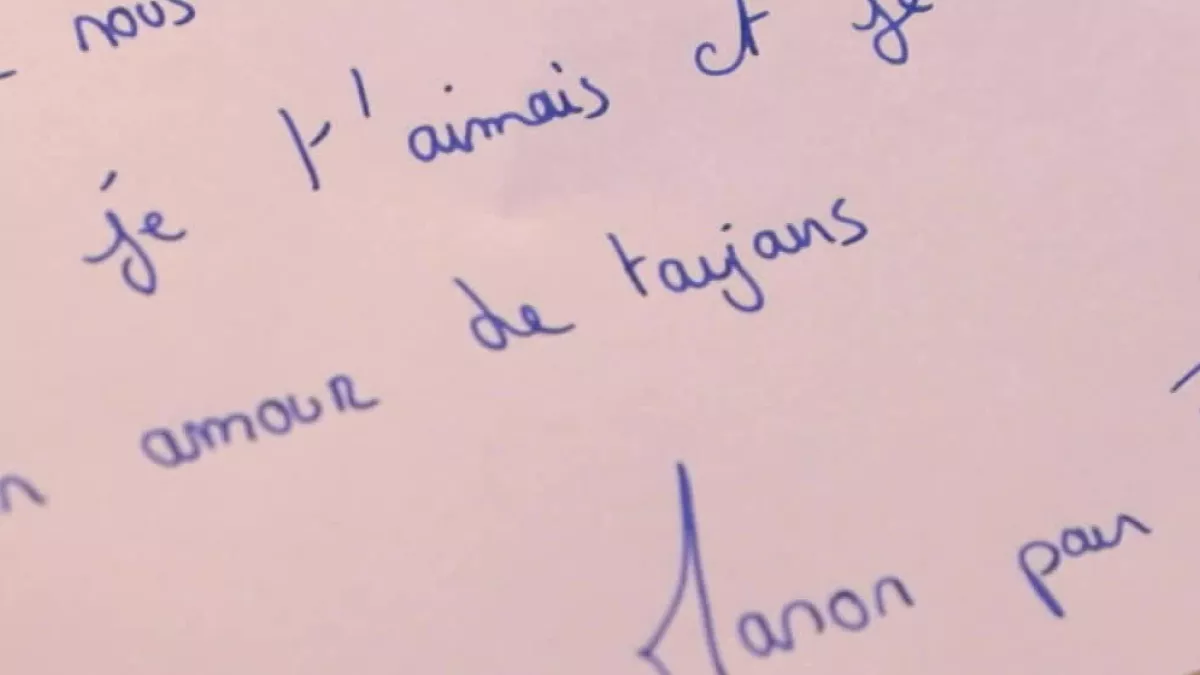 nous
je t'aimais et je
amour de toujours
Manon pour